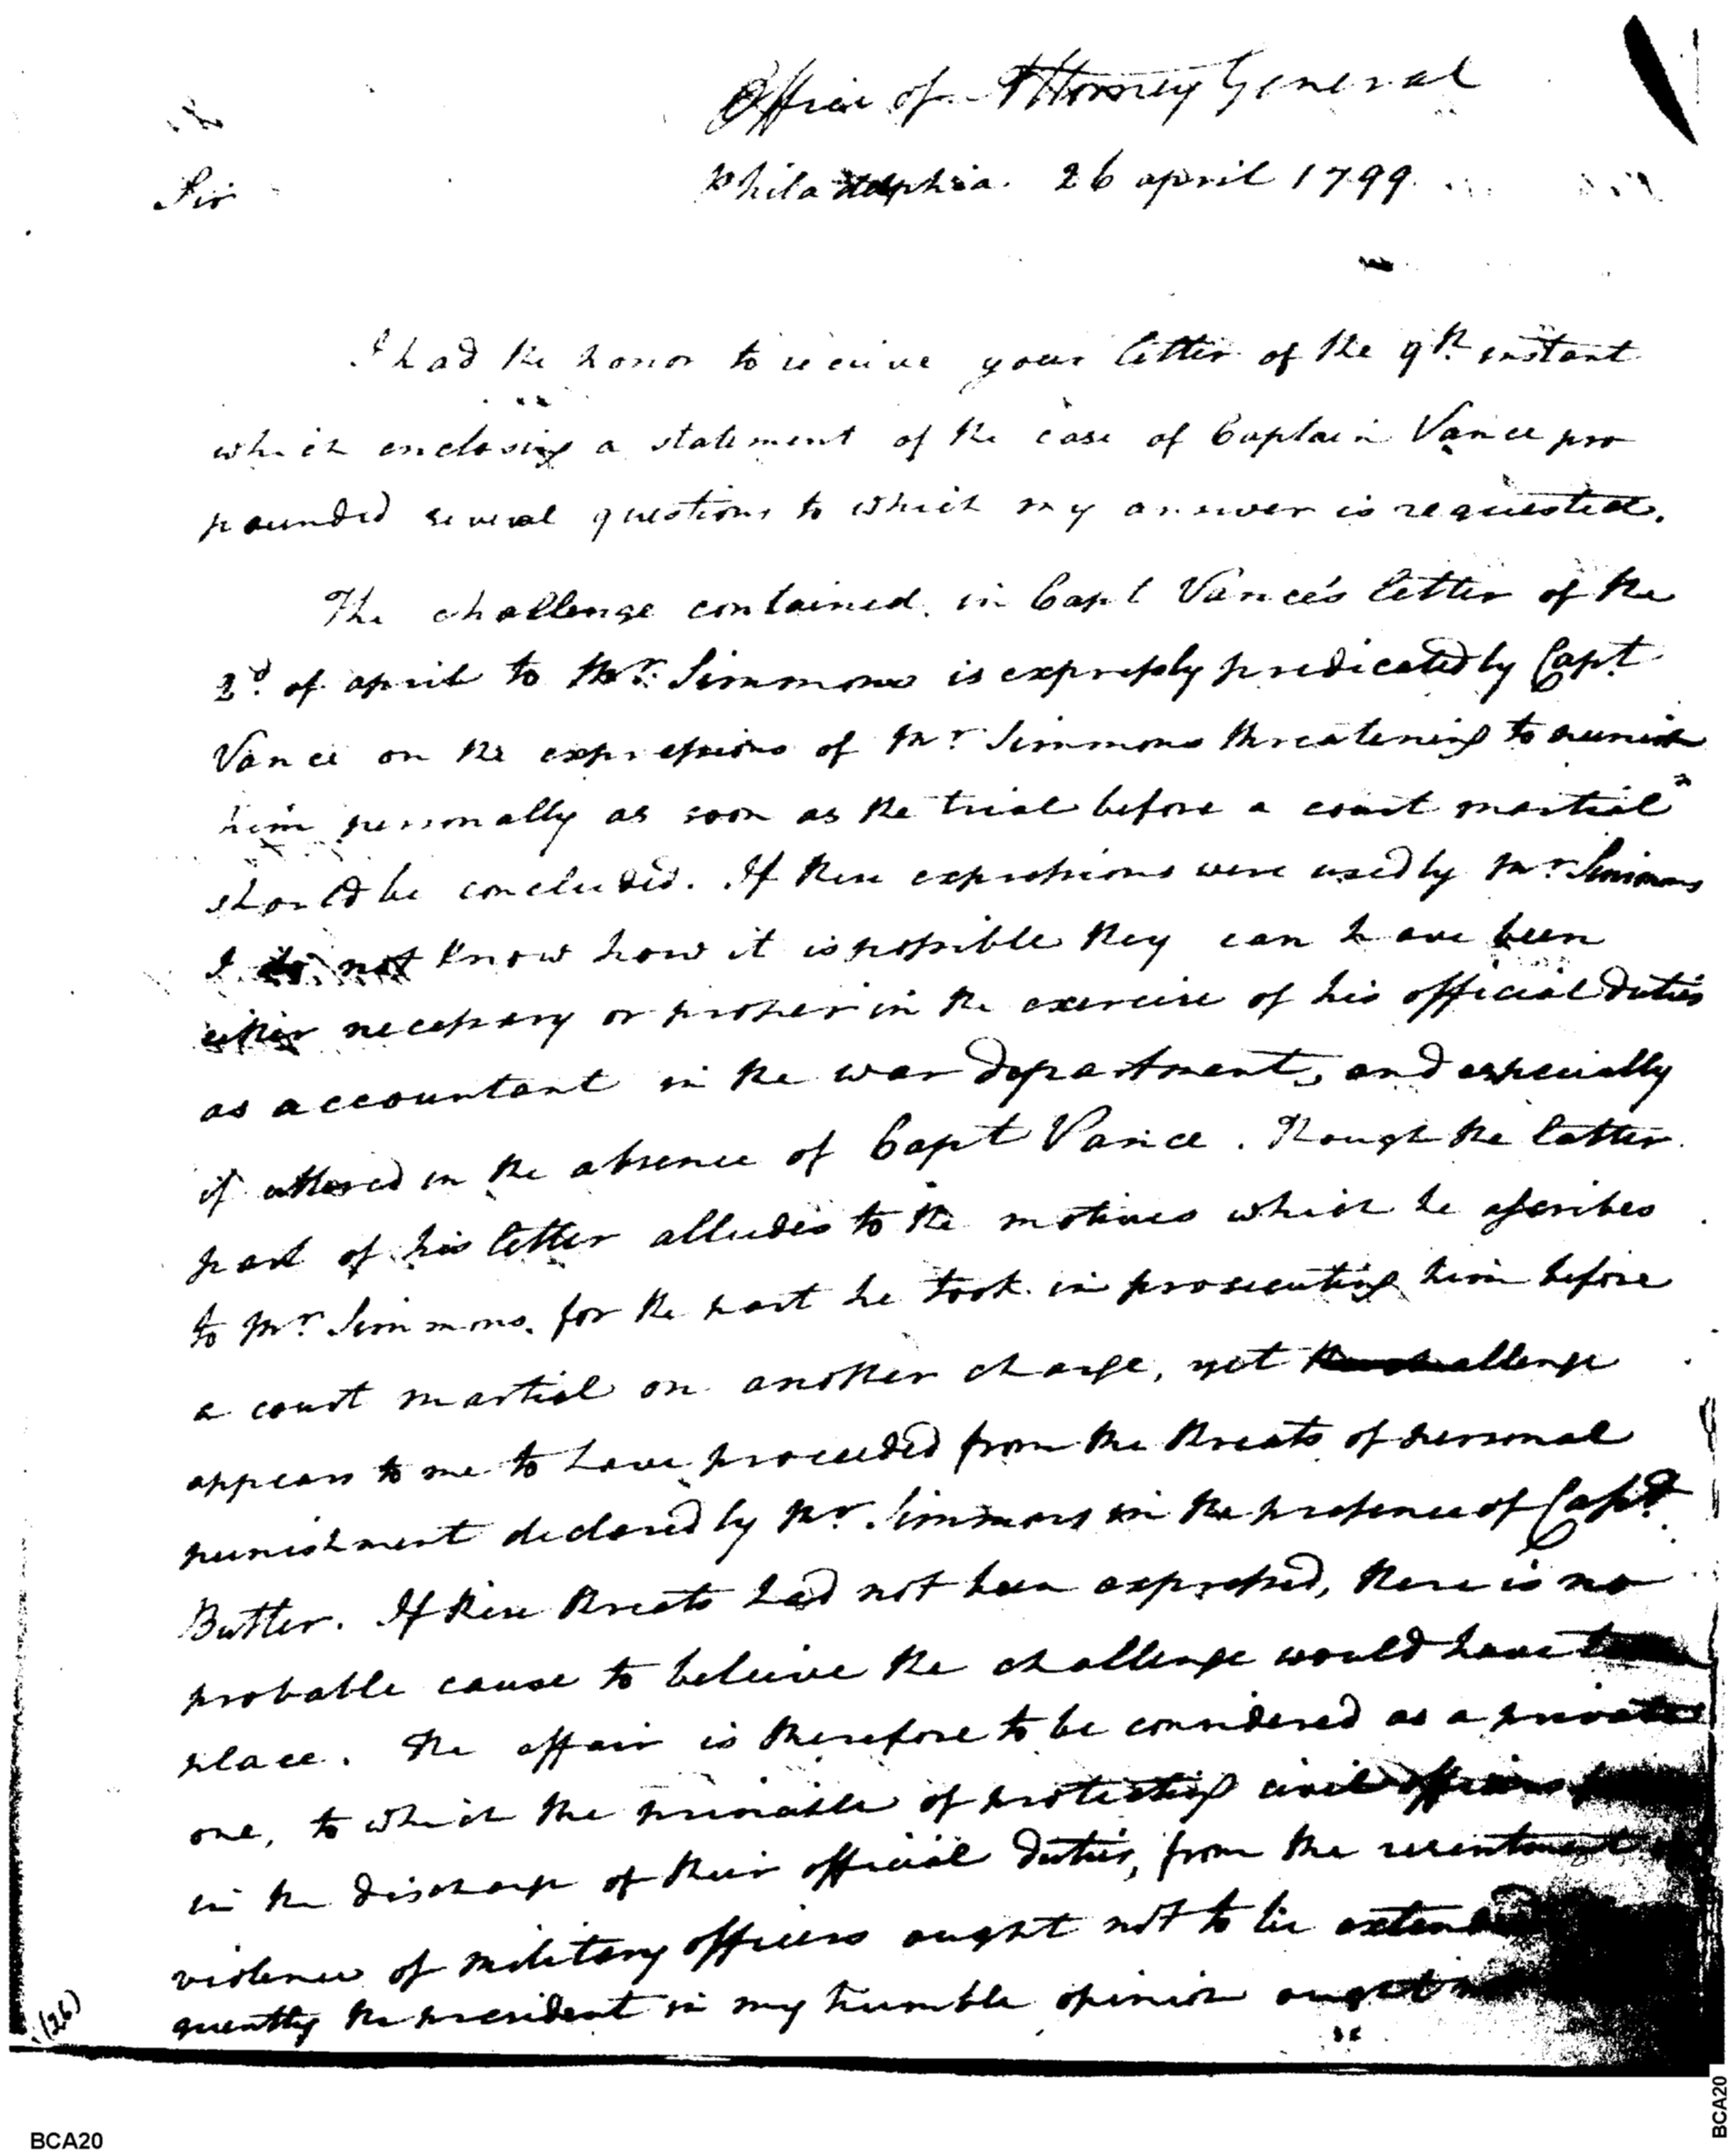 Office of Attorney General
Sir
Philadelphia. 26 april 1799.
I had the honor to receive your letter of the 9th. instant
which enclosing a statement of the case of Captain Vance pro
pounded several questions to which my answer is requested.
The challenge contained in Capt Vance's letter of the
2d. of april to Mr. Simmons is expressly predicated by Capt
Vance on the expressions of Mr. Simmons threatening to punish
him personally as soon as the trial before a court martial"
should be concluded. If these expressions were used by Mr. Simmons
I do not know how it is possible they can have been
either necessary or proper in the exercise of his official duties
as accountant in the war department, and especially
if uttered in the absence of Capt Vance. Though the latter
part of his letter alludes to the motives which he ascribes
to Mr. Simmons. for the part he took in prosecuting him before
a court martial on another charge, yet the challenge
appears to me to have proceeded from the threats of personal
punishment declared by Mr. Simmons in the presence of Capt.
Butler. If these threats had not been expressed, there is no
probable cause to beleive the challenge would have
place. The affair is therefore to be considered as a private
one, to which the principle of protecting civil officers
in the discharge of their official duties, from the resentment
violence of military officers ought not to be
quently the president in my humble opinion ought
(26)
BCA20
BCA20